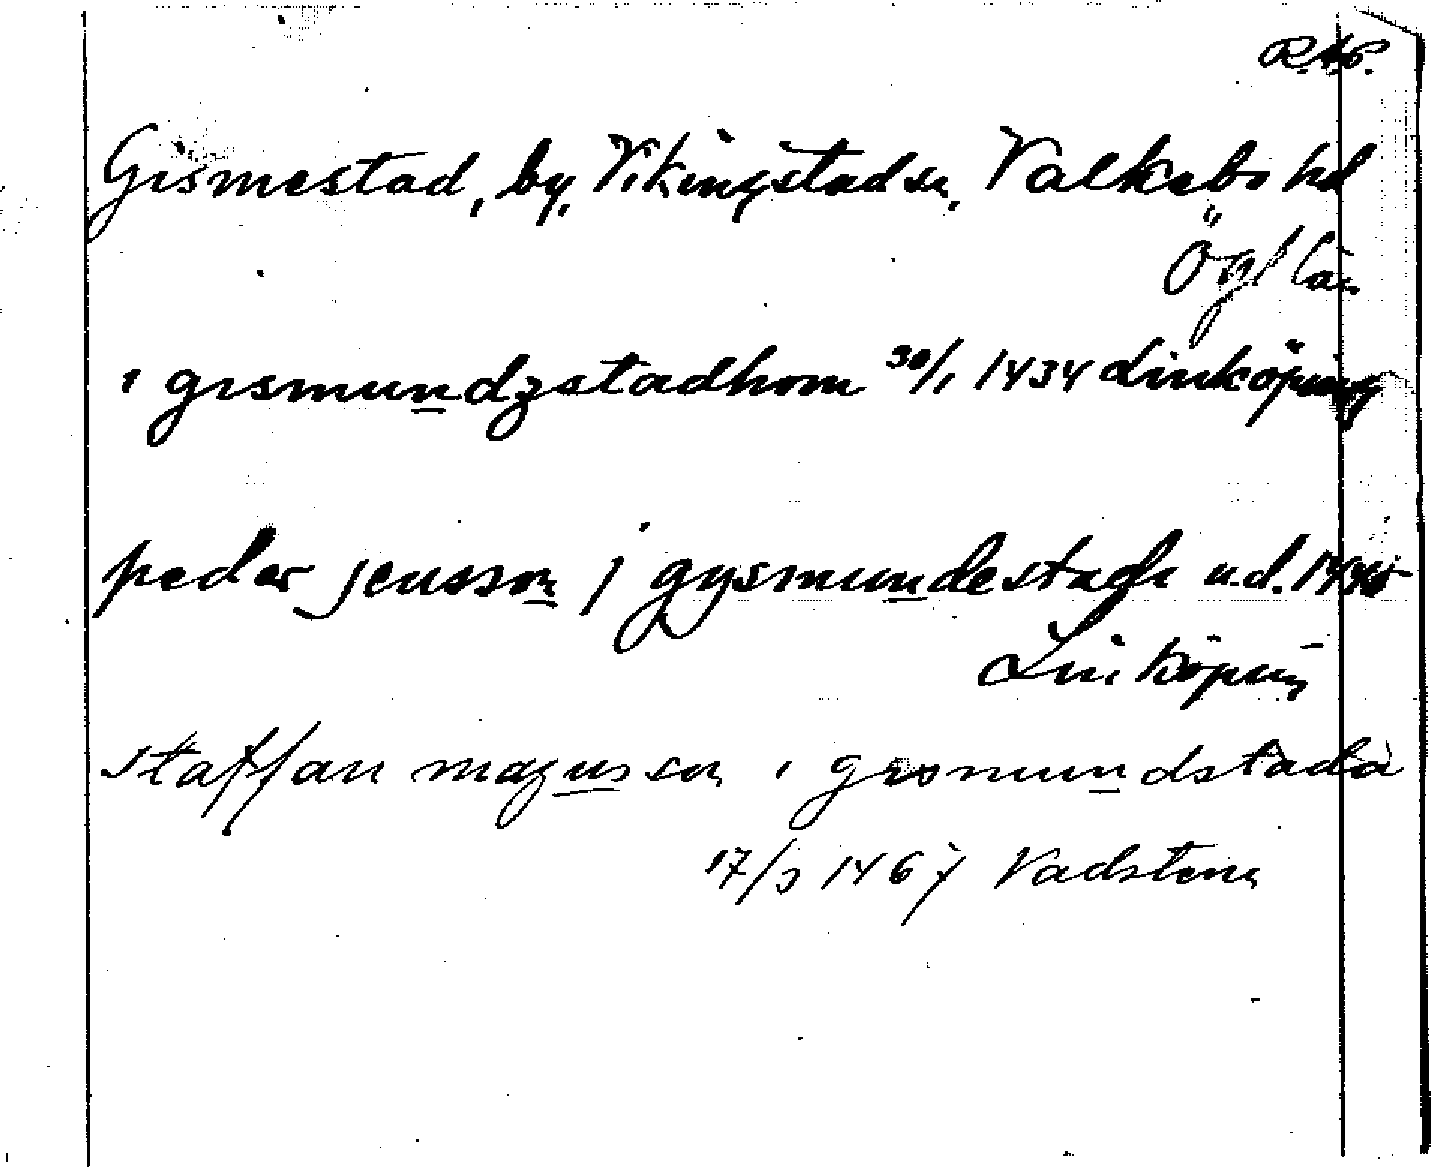 RAP.
Gismestad, by, Vikingstad sn, Valkebo hd
Ögl län
i gismundzstadhom 30/1 1434 Linköping
peder jensson j gysmundestadh u.d.
Linköping
staffan magnsson i gismundstada
17/3 1467 Vadstena